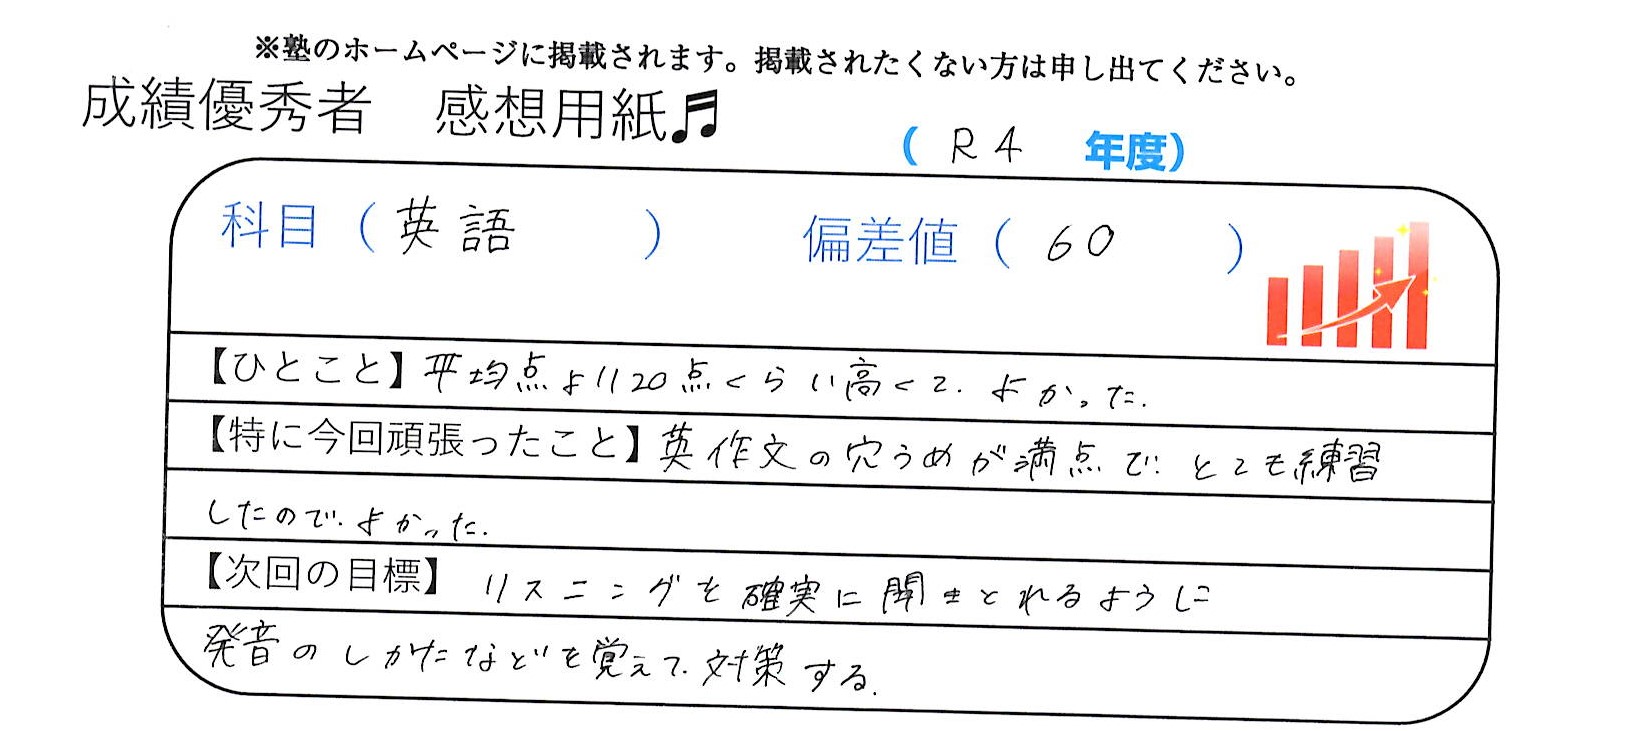 ※塾のホームページに掲載されます。掲載されたくない方は申し出てください。
成績優秀者 感想用紙♬
( R4 年度)
科目(英語 ) 偏差値( 60 )
【ひとこと】平均点より20点くらい高くて、よかった。
【特に今回頑張ったこと】英作文の穴うめが満点で、とても練習
したので、よかった。
【次回の目標】リスニングを確実に聞きとれるように
発音のしかたなどを覚えて、対策する。